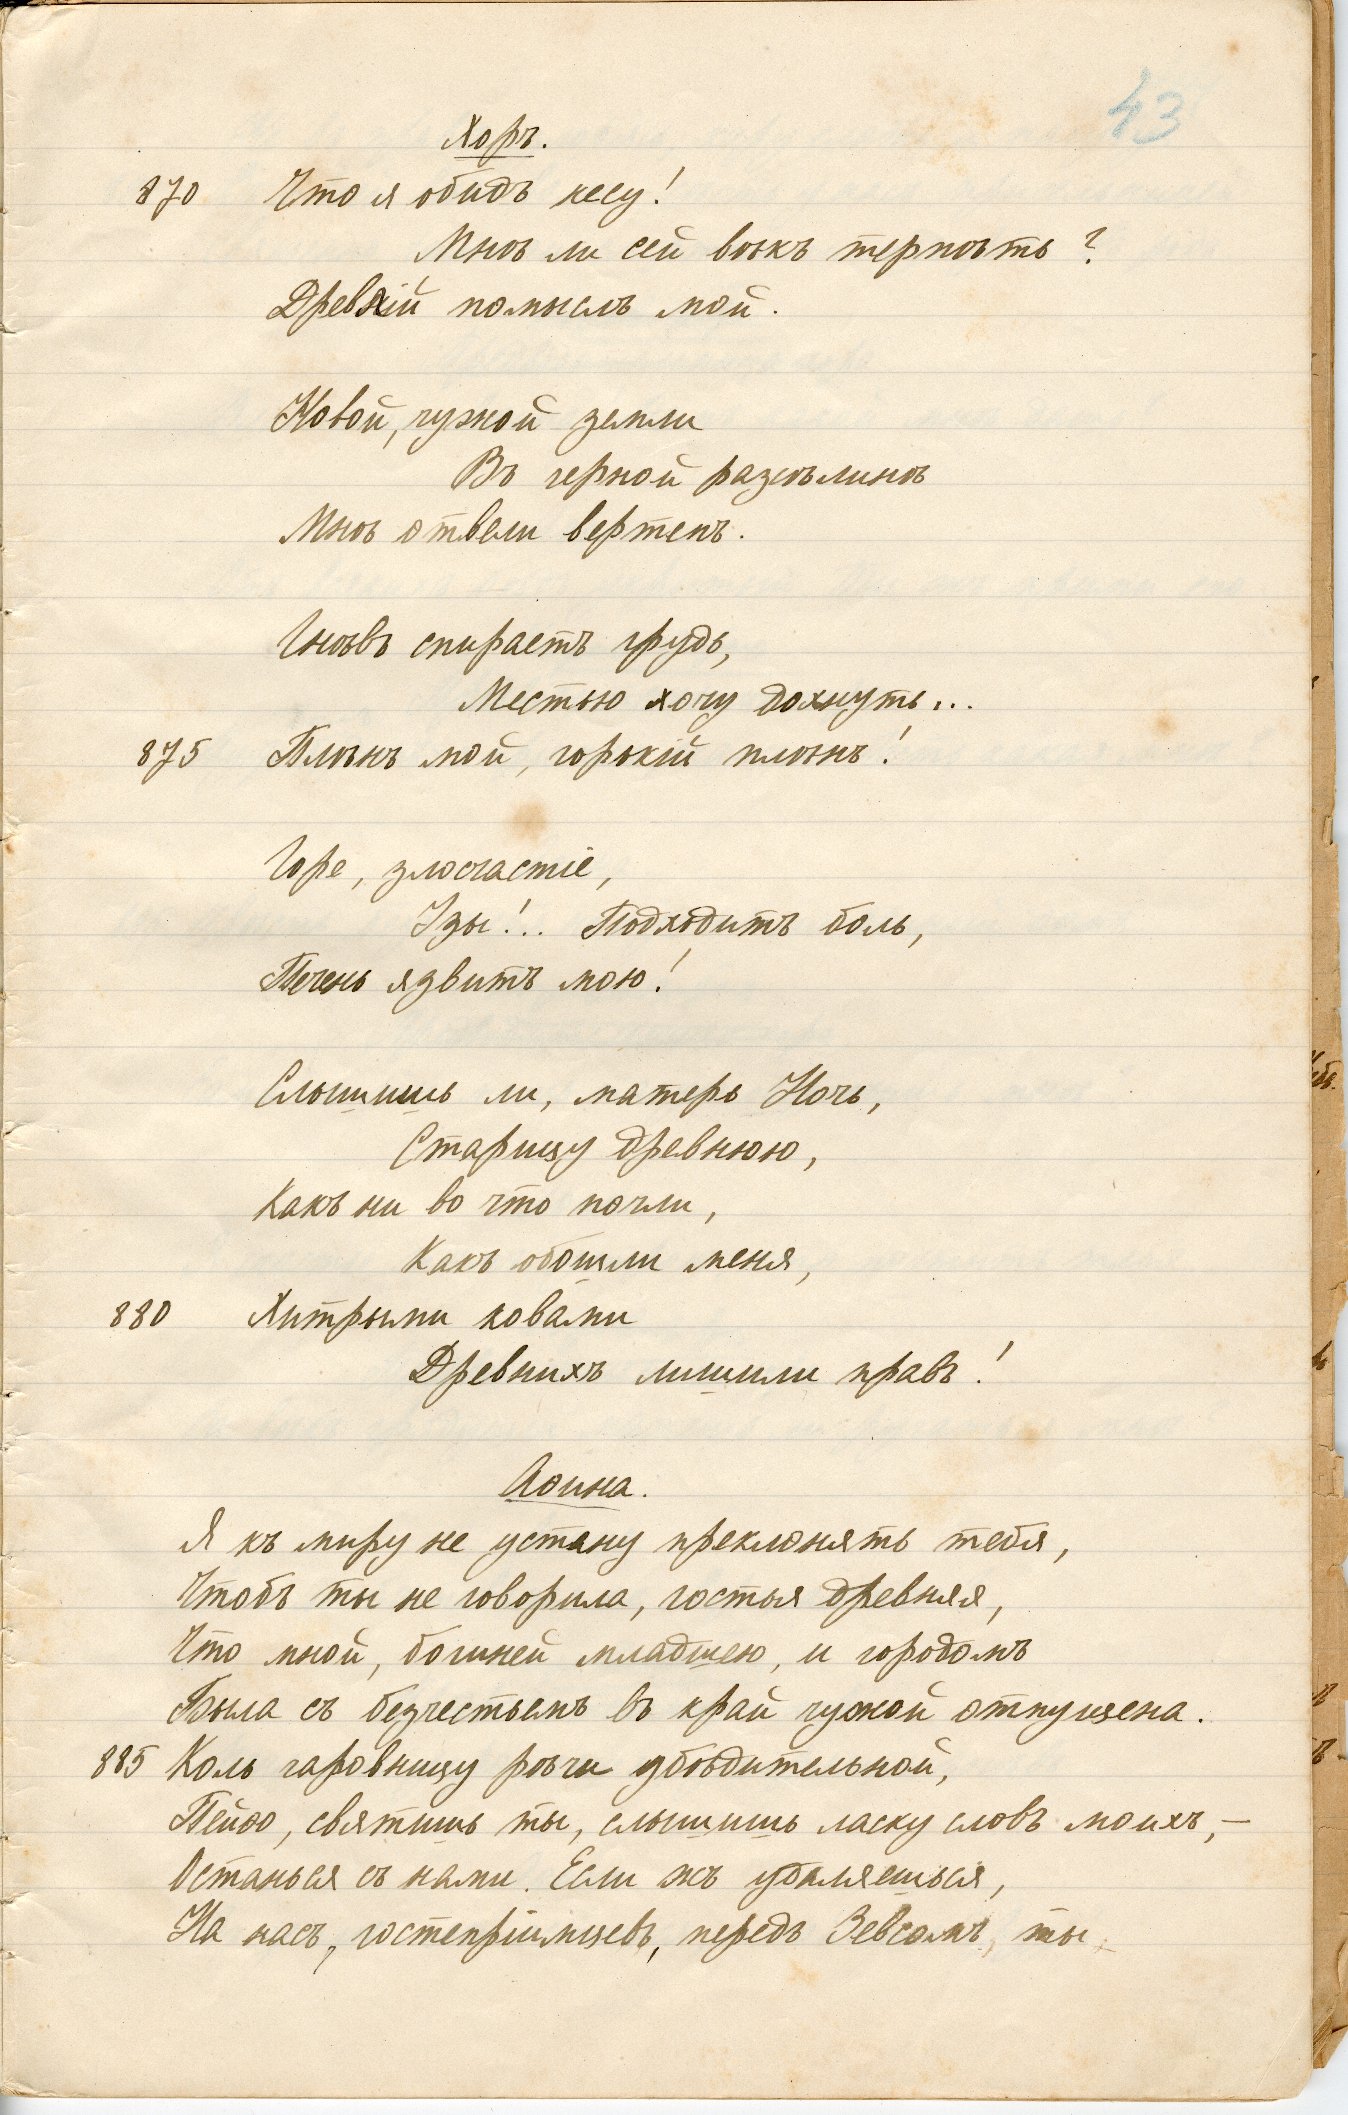 43
Хоръ.
870 Что я обидъ несу!
Мнѣ ли сей вѣкъ терпѣть?
Древній помыслъ мой.
Новой, чужой земли
Въ черной разсѣлинѣ
Мнѣ отвели вертепъ.
Гнѣвъ спираетъ грудь,
Местью хочу дохнуть...
875 Плѣнъ мой, горькій плѣнъ!
Горе, злосчастіе,
Узы!.. Подходитъ боль,
Печень язвитъ мою!
Слышишь ли, матерь Ночь,
Старицу древнюю,
Какъ ни во что почли,
Какъ обошли меня,
880 Хитрыми ковами
Древнихъ лишили правъ!
Аѳина.
Я къ миру не устану преклонять тебя,
Чтобъ ты не говорила, гостья древняя,
Что мной, богиней младшею, и городомъ
Была съ безчестьемъ въ край чужой отпущена.
885 Коль чаровницу рѣчи убѣдительной,
Пейѳо, святишь ты, слышишь ласку словъ моихъ,—
Останься съ нами. Если жъ удаляешься,
На насъ, гостепріимцевъ, передъ Зевсомъ, ты